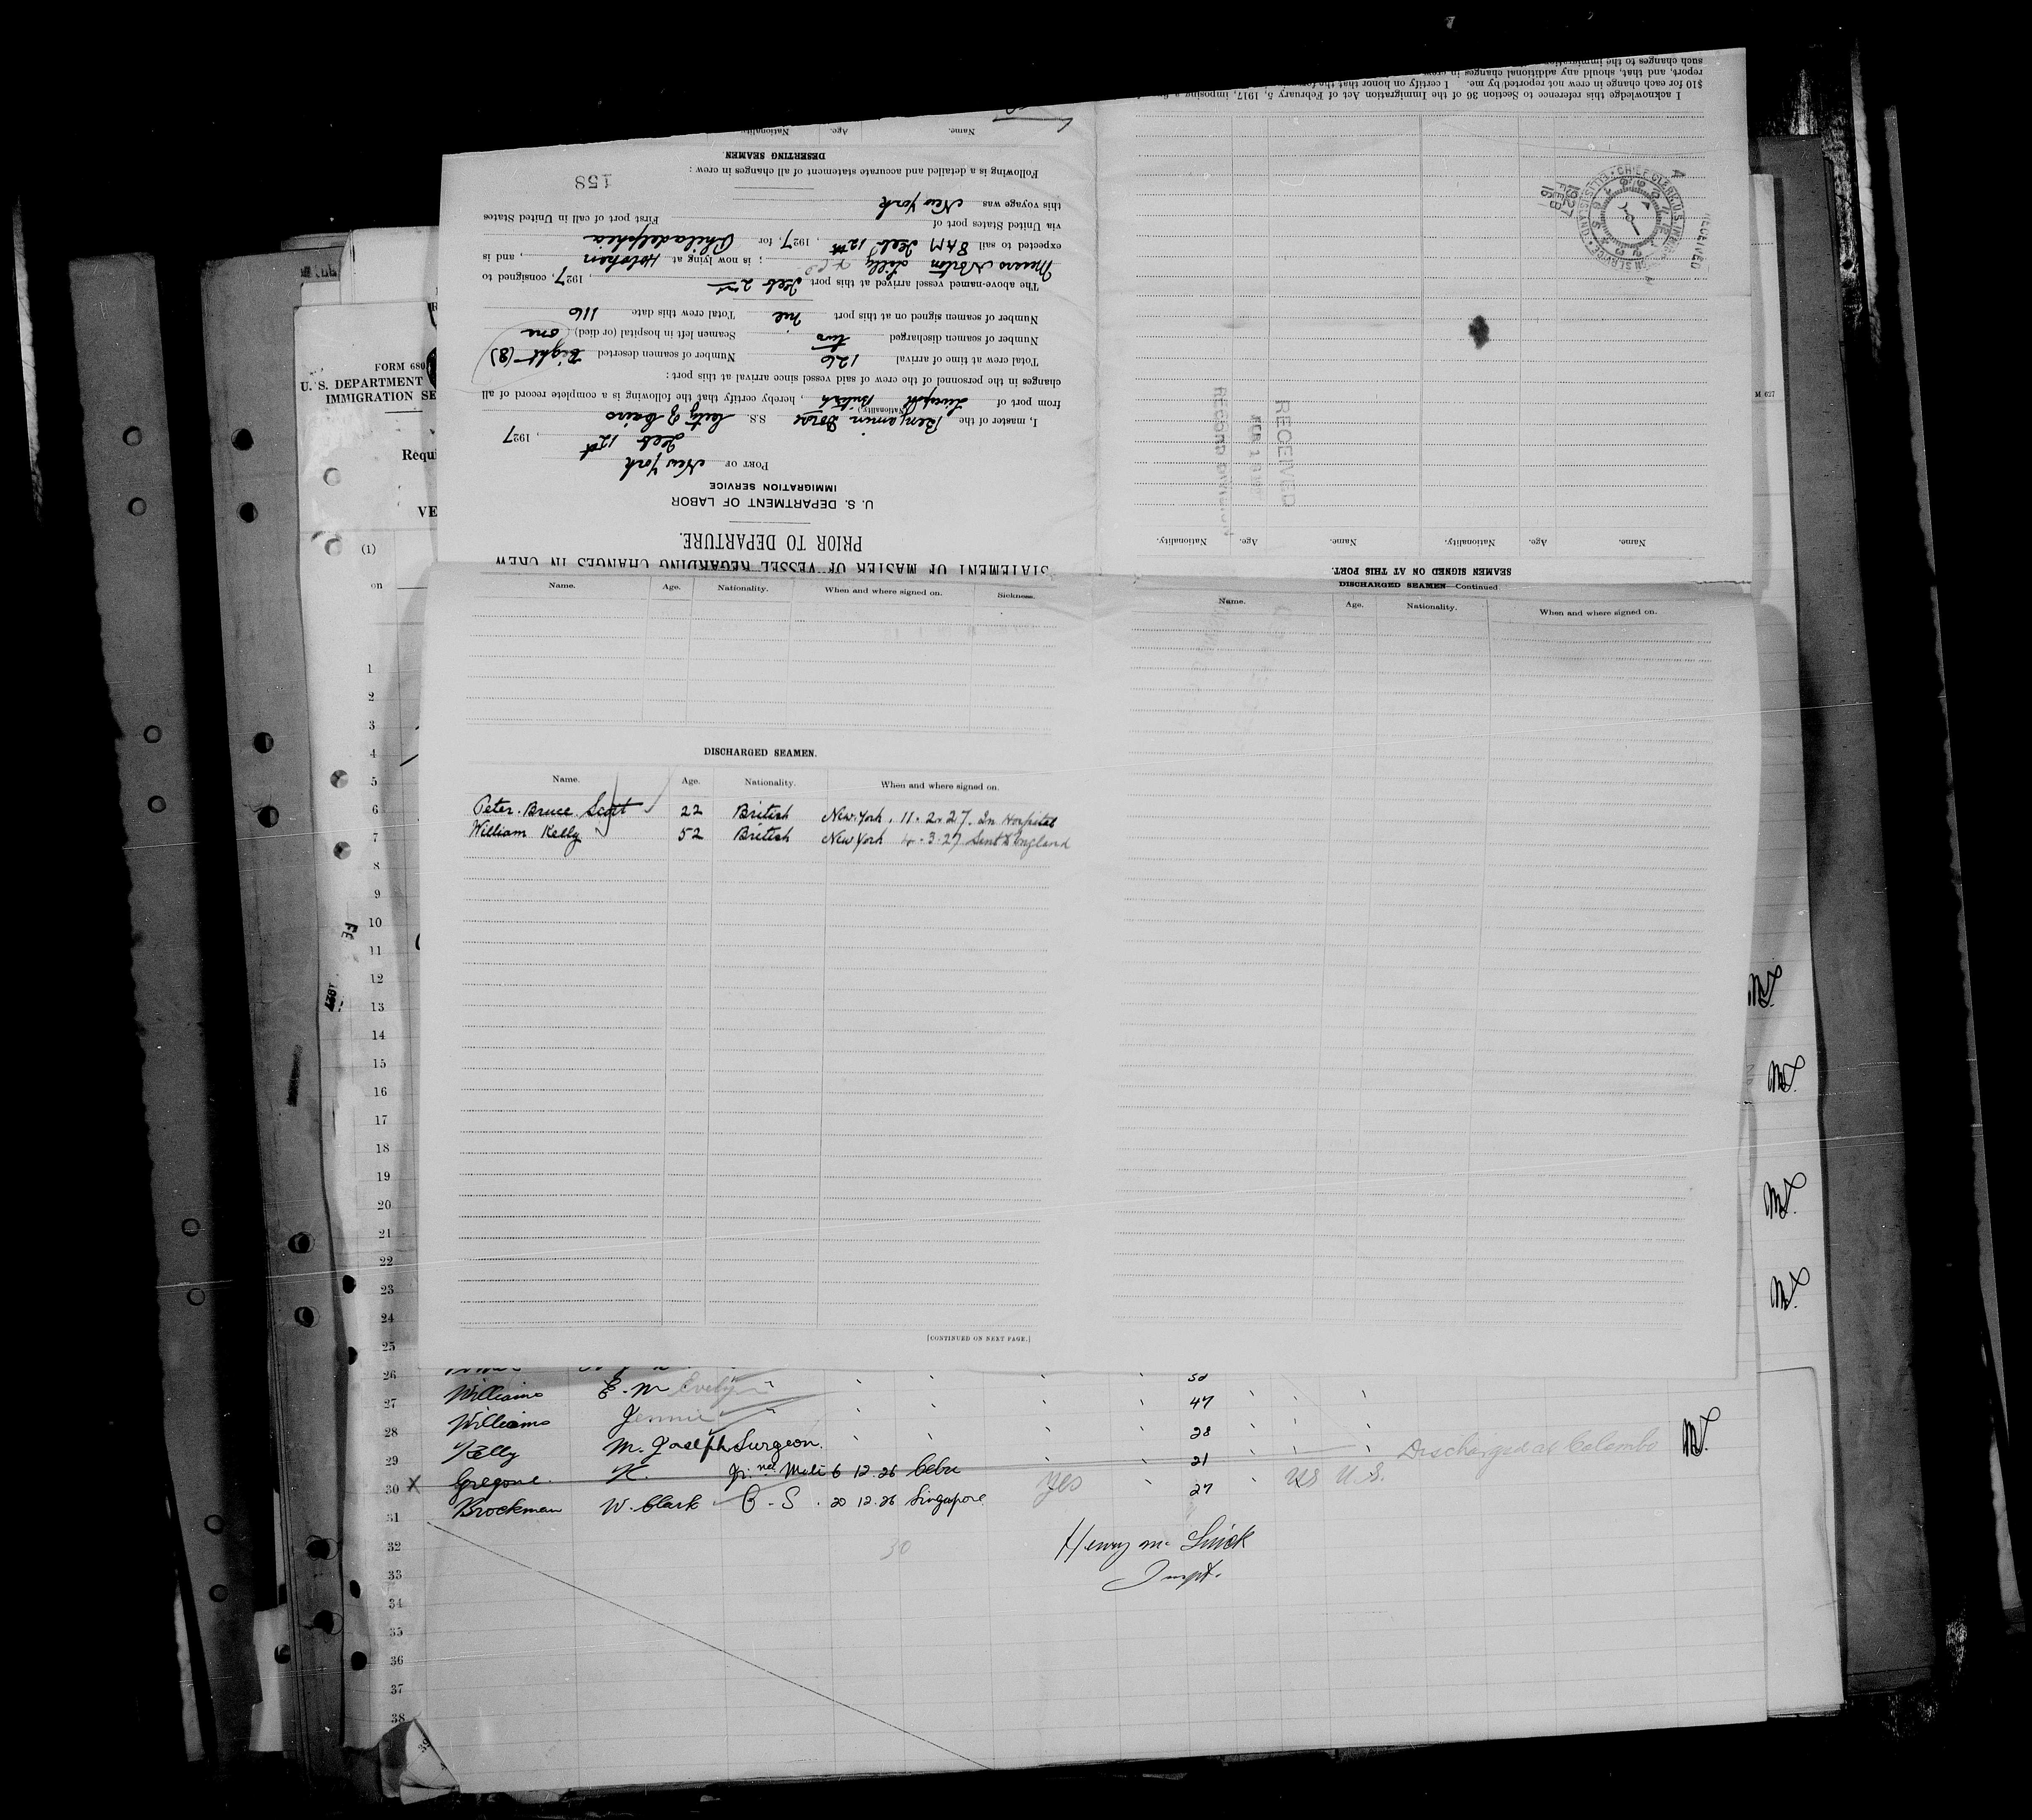 STATEMENT OF MASTER OF VESSEL REGARDING CHANGES IN CREW
PRIOR TO DEPARTURE.
U. S. DEPARTMENT OF LABOR
IMMIGRATION SERVICE
PORT OF New York
Feb 12th, 1927
I, master of the Benjamin Dorse S.S. City of Cairo
(Nationality)
from port of Liverpool British, hereby certify that the following is a complete record of all
changes in the personnel of the crew of said vessel since arrival at this port:
Total crew at time of arrival 126 Number of seamen deserted Eight (8)
Number of seamen discharged two Seamen left in hospital (or died) one
Number of seamen signed on at this port nil Total crew this date 116
The above-named vessel arrived at this port Feb 2nd, 1927, consigned to
Messrs Norton Lilly & Co; is now lying at Hoboken, and is
expected to sail 8 AM Feb 12th, 1927, for Philadelphia
via United States port of First port of call in United States
this voyage was New York
158
Following is a detailed and accurate statement of all changes in crew:
DESERTING SEAMEN.
Name. Age. Nationality.
SEAMEN SIGNED ON AT THIS PORT.
Name. Age. Nationality. Name. Age. Nationality.
RECEIVED
FEB
RECORD DIVISION
RECEIVED
1927
FEB
16
CHIEF CLERK U.S. IMM
ELLIS ISLAND
I acknowledge this reference to Section 36 of the Immigration Act of February 5, 1917, imposing a
$10 for each change in crew not reported by me. I certify on honor that the
report, and that, should any additional changes in
such changes to the
Name. Age. Nationality. When and where signed on. Sickness.
DISCHARGED SEAMEN.
Name. Age. Nationality. When and where signed on.
Peter. Bruce Scott 22 British New York. 11.2.27. In Hospital
William Kelly 52 British New York 4.3.27 Sent to England
[CONTINUED ON NEXT PAGE.]
DISCHARGED SEAMEN—Continued
Name. Age. Nationality. When and where signed on.
FORM 680
U. S. DEPARTMENT
IMMIGRATION SE
Requi
VE
(1)
on
M 627
1
2
3
4
5
6
7
8
9
10
11
12
13
14
15
16
17
18
19
20
21
22
23
24
25
26
27 Williams E. M Evelyn 47
28 Williams Jennie 28
29 Kelly M. Joseph Surgeon. 21
30 X Gregorie K. 6 12.26 Cebu yes 27 Discharged at Colombo
31 Brockman W. Clark 20 12.26 Singapore U.S.
32
33
34
35
36
37
38
39
30
Henry
Inspt.